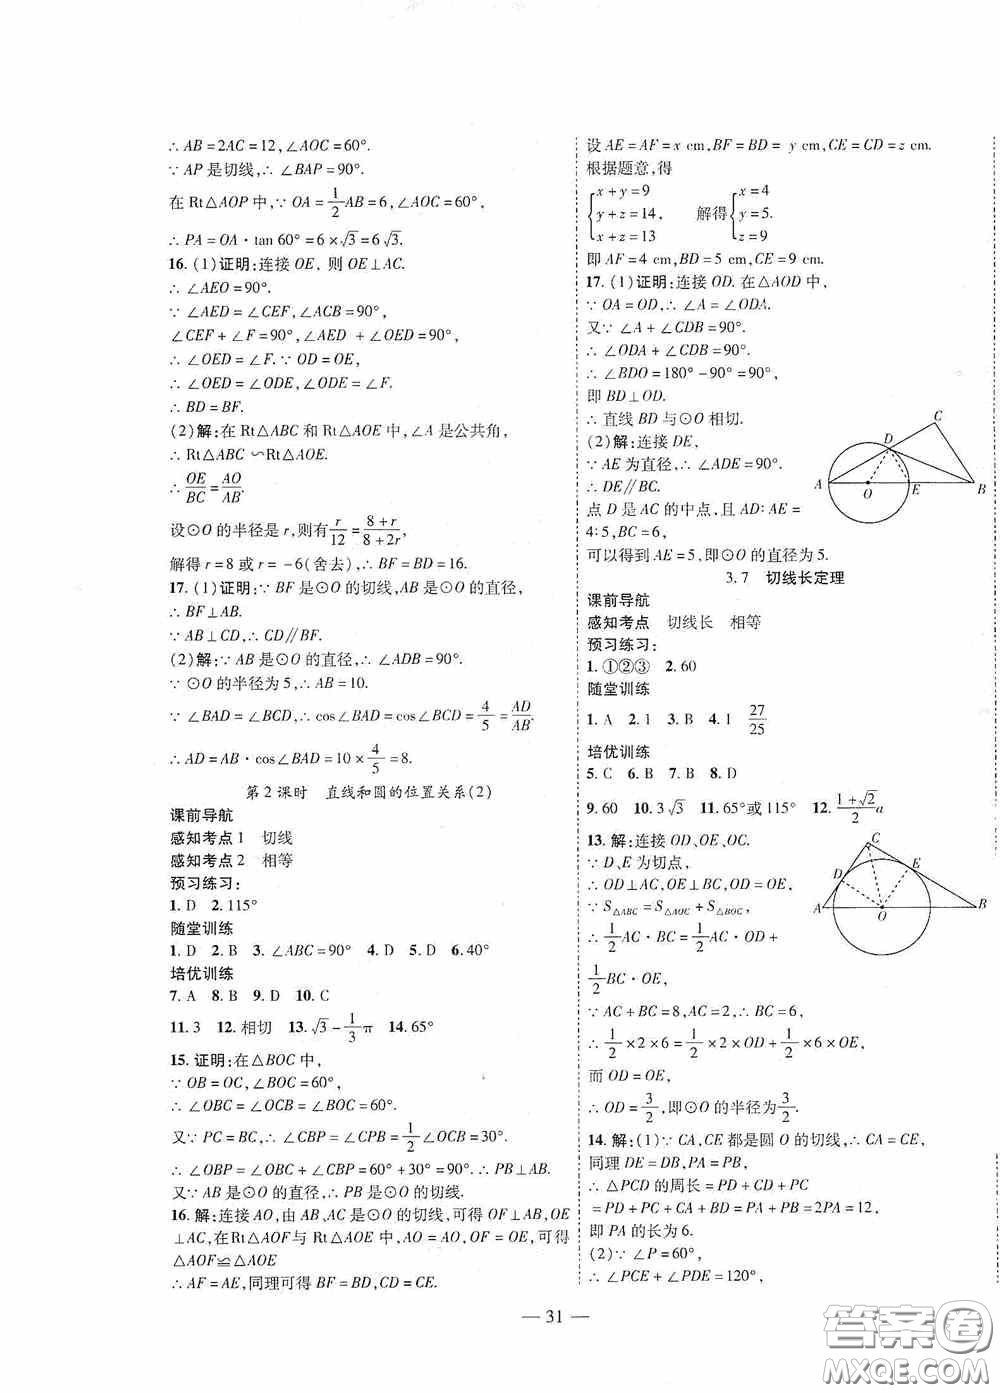 ∴ AB=2AC=12,∠AOC=60°.
∵ AP是切线,∴ ∠BAP=90°.
在Rt△AOP中,∵ OA=1/2AB=6,∠AOC=60°,
∴ PA=OA·tan 60°=6×√3=6√3.
16.(1)证明:连接OE, 则OE⊥AC.
∴ ∠AEO=90°.
∵ ∠AED=∠CEF,∠ACB=90°,
∠CEF+∠F=90°,∠AED +∠OED=90°.
∴ ∠OED=∠F.∵ OD=OE,
∴ ∠OED=∠ODE,∠ODE=∠F.
∴ BD=BF.
(2)解:在Rt△ABC和Rt△AOE中,∠A是公共角,
∴ Rt△ABC∽Rt△AOE.
∴ OE/BC=AO/AB.
设⊙O的半径是r,则有r/12=(8+r)/(8+2r),
解得r=8或r=-6(舍去),∴ BF=BD=16.
17.(1)证明:∵ BF是⊙O的切线,AB是⊙O的直径,
∴ BF⊥AB.
∵ AB⊥CD,∴ CD∥BF.
(2)解:∵ AB是⊙O的直径,∴ ∠ADB=90°.
∵ ⊙O的半径为5,∴ AB=10.
∵ ∠BAD=∠BCD,∴ cos∠BAD=cos∠BCD=4/5=AD/AB.
∴ AD=AB·cos∠BAD=10×4/5=8.
第2课时 直线和圆的位置关系(2)
课前导航
感知考点1 切线
感知考点2 相等
预习练习:
1. D 2. 115°
随堂训练
1. D 2. B 3. ∠ABC=90° 4. D 5. D 6. 40°
培优训练
7. A 8. B 9. D 10. C
11. 3 12. 相切 13. √3-1/3π 14. 65°
15. 证明:在△BOC中,
∵ OB=OC,∠BOC=60°,
∴ ∠OBC=∠OCB=∠BOC=60°.
又∵ PC=BC,∴ ∠CBP=∠CPB=1/2∠OCB=30°.
∴ ∠OBP=∠OBC+∠CBP=60°+30°=90°.∴ PB⊥AB.
又∵ AB是⊙O的直径,∴ PB是⊙O的切线.
16. 解:连接AO,由AB、AC是⊙O的切线,可得OF⊥AB,OE
⊥AC,在Rt△AOF与Rt△AOE中,AO=AO,OF=OE,可得
△AOF≌△AOE
∴ AF=AE,同理可得BF=BD,CD=CE.
设AE=AF=x cm,BF=BD= y cm,CE=CD=z cm.
根据题意,得
{x+y=9 {x=4
{y+z=14, 解得{y=5.
{x+z=13 {z=9
即AF=4 cm,BD=5 cm,CE=9 cm.
17.(1)证明:连接OD. 在△AOD中,
∵ OA=OD,∴ ∠A=∠ODA.
又∵ ∠A+∠CDB=90°.
∴ ∠ODA+∠CDB=90°.
∴ ∠BDO=180°-90°=90°,
即BD⊥OD.
∴ 直线BD与⊙O相切.
(2)解:连接DE,
∵ AE为直径,∴ ∠ADE=90°.
∴ DE∥BC.
点D是AC的中点,且AD∶AE=
4∶5,BC=6,
可以得到AE=5,即⊙O的直径为5.
C
D
A
O
E
B
3.7 切线长定理
课前导航
感知考点 切线长 相等
预习练习:
1. ①②③ 2. 60
随堂训练
1. A 2. 1 3. B 4. 1 27/25
培优训练
5. C 6. B 7. B 8. D
9. 60 10. 3√3 11. 65°或115° 12. (1+√2)/2 a
13. 解:连接OD、OE、OC.
∵ D、E为切点,
∴ OD⊥AC,OE⊥BC,OD=OE,
∵ S△ABC=S△AOC+S△BOC,
∴ 1/2AC·BC=1/2AC·OD+
1/2BC·OE,
∵ AC+BC=8,AC=2,∴ BC=6,
∴ 1/2×2×6=1/2×2×OD+1/2×6×OE,
而OD=OE,
∴ OD=3/2,即⊙O的半径为3/2.
C
D
E
A
O
B
14. 解:(1)∵ CA、CE都是圆O的切线,∴ CA=CE,
同理DE=DB,PA=PB,
∴ △PCD的周长=PD+CD+PC
=PD+PC+CA+BD=PA+PB=2PA=12,
即PA的长为6.
(2)∵ ∠P=60°,
∴ ∠PCE+∠PDE=120°,
— 31 —
答案卷
MXQE.COM